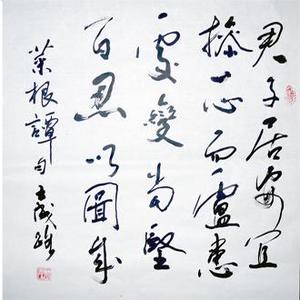 君子居安宜
操一心而慮患
處變當堅
百忍以圖成
菜根譚句